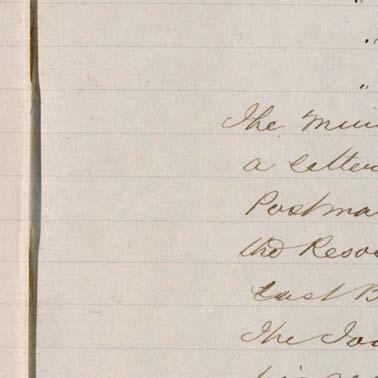 "
"
"
The Min
a letter
Postma
the Reso
East B
The To